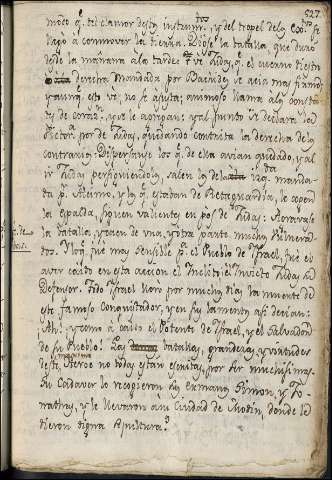 527.
moso q.e del clamor destos instrum.tos, y del tropel delos Cav.os se
llegò à commover la tierra. Diose la batalla, que durò
desde la mañana ala tarde: vè Judas, q. el cuerno diestro
derecha mandada por Bachides se asia mas fuerte,
y aunq. esto vè; no se ajusta; animoso llama ala constan-
te de corazon, que le acompañe: y al punto se declara la
Victoria por de Judas, quedando contrita la derecha de lo
contrario: Dispersanse los q. de ella avian quedado, y al
ir Judas persiguiendolos, salen los de la izq.da manda-
da p.r Alcimo, y los q. estaban de Retaguardia, le cogen
la espalda, siguen valientes en pos de Judas: Agravase
la batalla, y caen de una, y otra parte muchos vulnera-
dos. Y lo q. fue mas sensible p.a el Pueblo de Israel, fuè el
aver caido en esta accion el Inclito, el Invicto Judas su
Defensor. Todo Israel lloro por muchos dias la muerte de
este famoso Conquistador, y en su lamento asi decian:
Ah! y como à caido el Potente de Israel, y el Salvador
de su Pueblo! Las batallas, grandezas, y virtudes
deste Heroe no todas estan escritas, por ser muchisimas.
Su Cadaver lo recogieron sus Hermanos Simon, y Jo-
nathas, y le llevaron à su Ciudad de Modin, donde le
dieron digna sepultura.